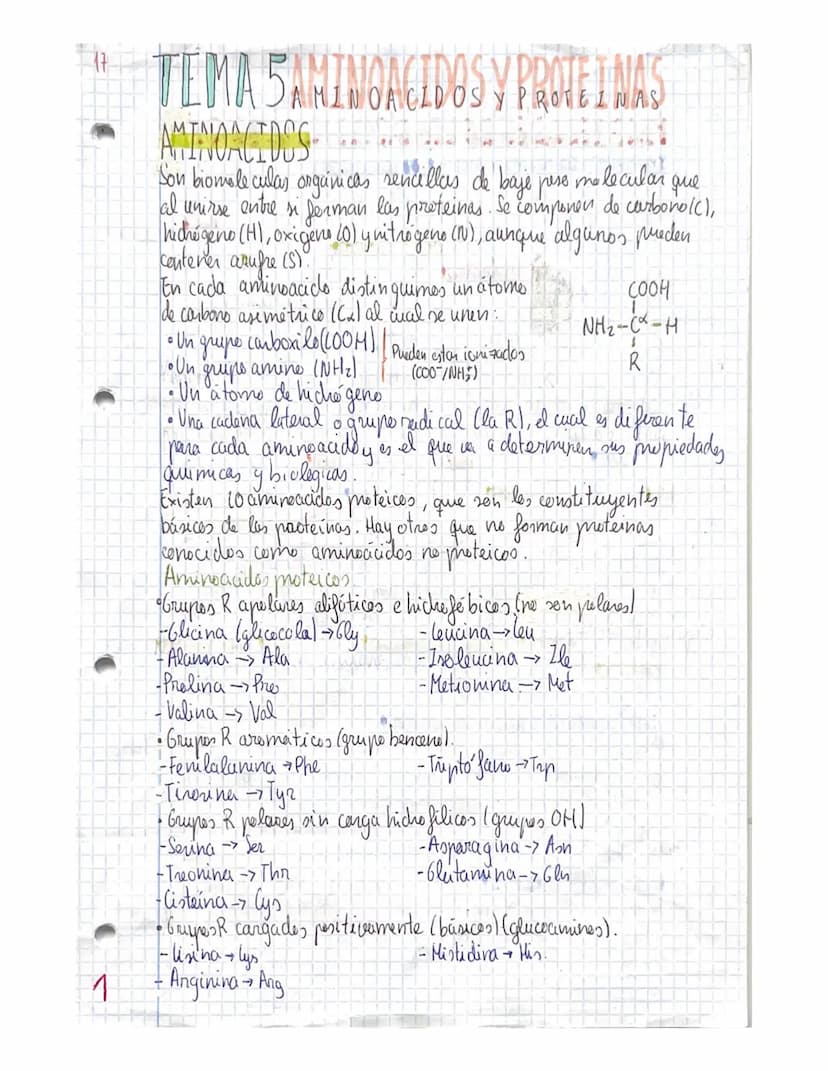 17
TEMA 5 AMINOACIDOS Y PROTEINAS
AMINOACIDOS
Son biomoleculas orgánicas sencillas de bajo peso molecular que
al unirse entre si forman las proteínas. Se componen de carbono(C),
hidrógeno (H), oxigeno (O) y nitrógeno (N), aunque algunos pueden
contener azufre (S).
En cada aminoacido distinguimos un átomo
de carbono asimétrico (Cα) al cual se unen:
• Un grupo carboxilo (COOH)
• Un grupo amino (NH2)
Pueden estar ionizados
(COO-/NH3+)
• Un átomo de hidrógeno
COOH
NH2-Cα-H
R
• Una cadena lateral o grupo radical (la R), el cual es diferente
para cada aminoacido y es el que va a determinar sus propiedades
químicas y biologicas.
Existen 20 aminoacidos proteicos, que son los constituyentes
básicos de las proteínas. Hay otros que no forman proteinas
conocidos como aminoácidos no proteicos.
Aminoacidos proteicos
• Grupos R apolares alifáticos e hidrofóbicos (no son polares)
-Glicina (glicocola)→Gly - Leucina→Leu
- Alanina → Ala - Isoleucina → Ile
-Prolina → Pro - Metionina → Met
- Valina → Val
• Grupos R aromáticos (grupo benceno).
-Fenilalanina →Phe - Triptófano →Trp
-Tirosina → Tyr
• Grupos R polares sin carga hidrofílicos (grupos OH)
-Serina → Ser -Asparagina → Asn
-Treonina → Thr -Glutamina → Gln
-Cisteína → Cys
• Grupos R cargados positivamente (básicos) (glucoaminos).
- Lisina → Lys - Histidina → His.
- Arginina → Arg
1